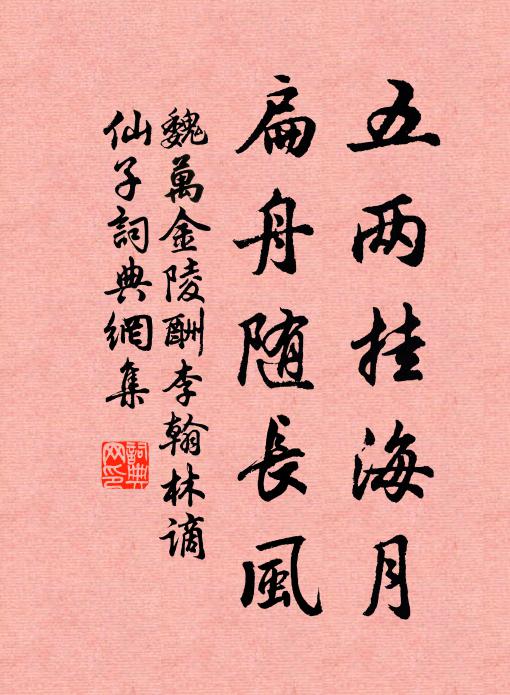 五两挂海月
扁舟随長風
魏萬金陵酬李翰林谪
仙子詞典網集
詞典
网印